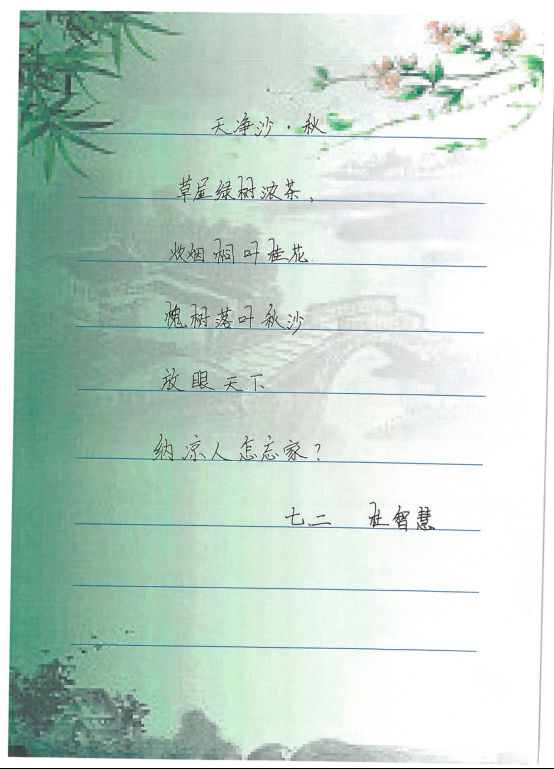 天净沙·秋
草屋绿树浓茶，
炊烟桐叶桂花
槐树落叶秋沙
放眼天下
纳凉人怎忘家？
七二 杜智慧